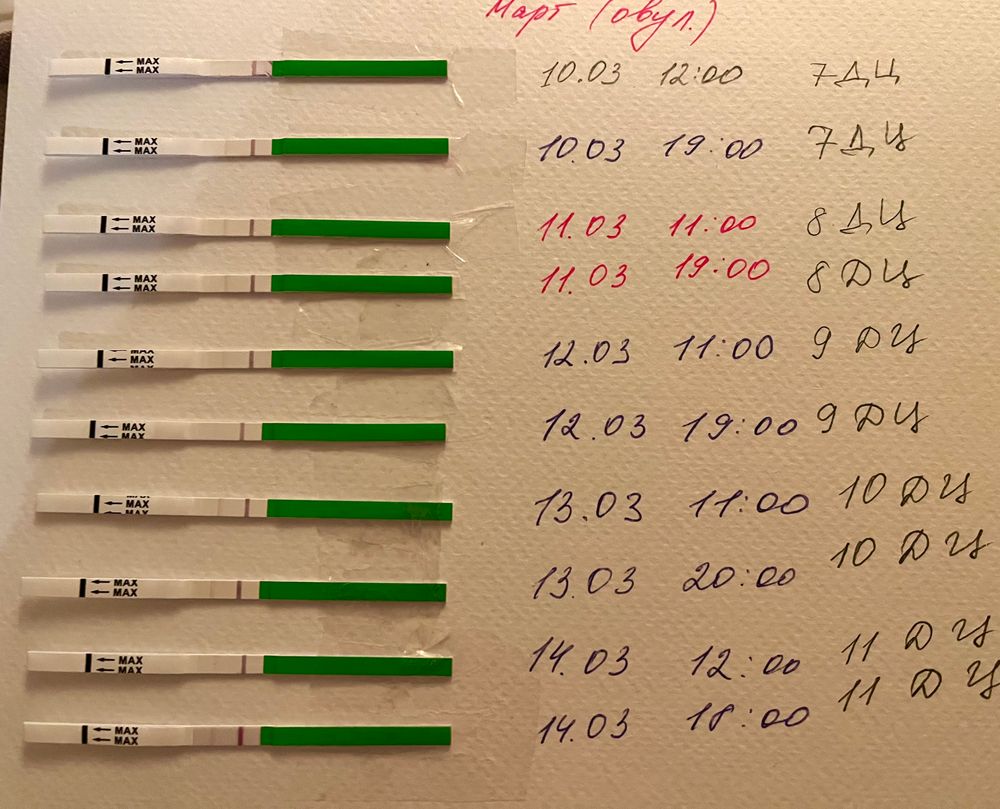 Март (овул.)
MAX
MAX
10.03 12:00 7 ДЦ
MAX
MAX
10.03 19:00 7 ДЦ
MAX
MAX
11.03 11:00 8 ДЦ
MAX
MAX
11.03 19:00 8 ДЦ
MAX
MAX
12.03 11:00 9 ДЦ
MAX
MAX
12.03 19:00 9 ДЦ
MAX
MAX
MAX
13.03 11:00 10 ДЦ
MAX
MAX
13.03 20:00 10 ДЦ
MAX
MAX
14.03 12:00 11 ДЦ
MAX
MAX
14.03 18:00 11 ДЦ